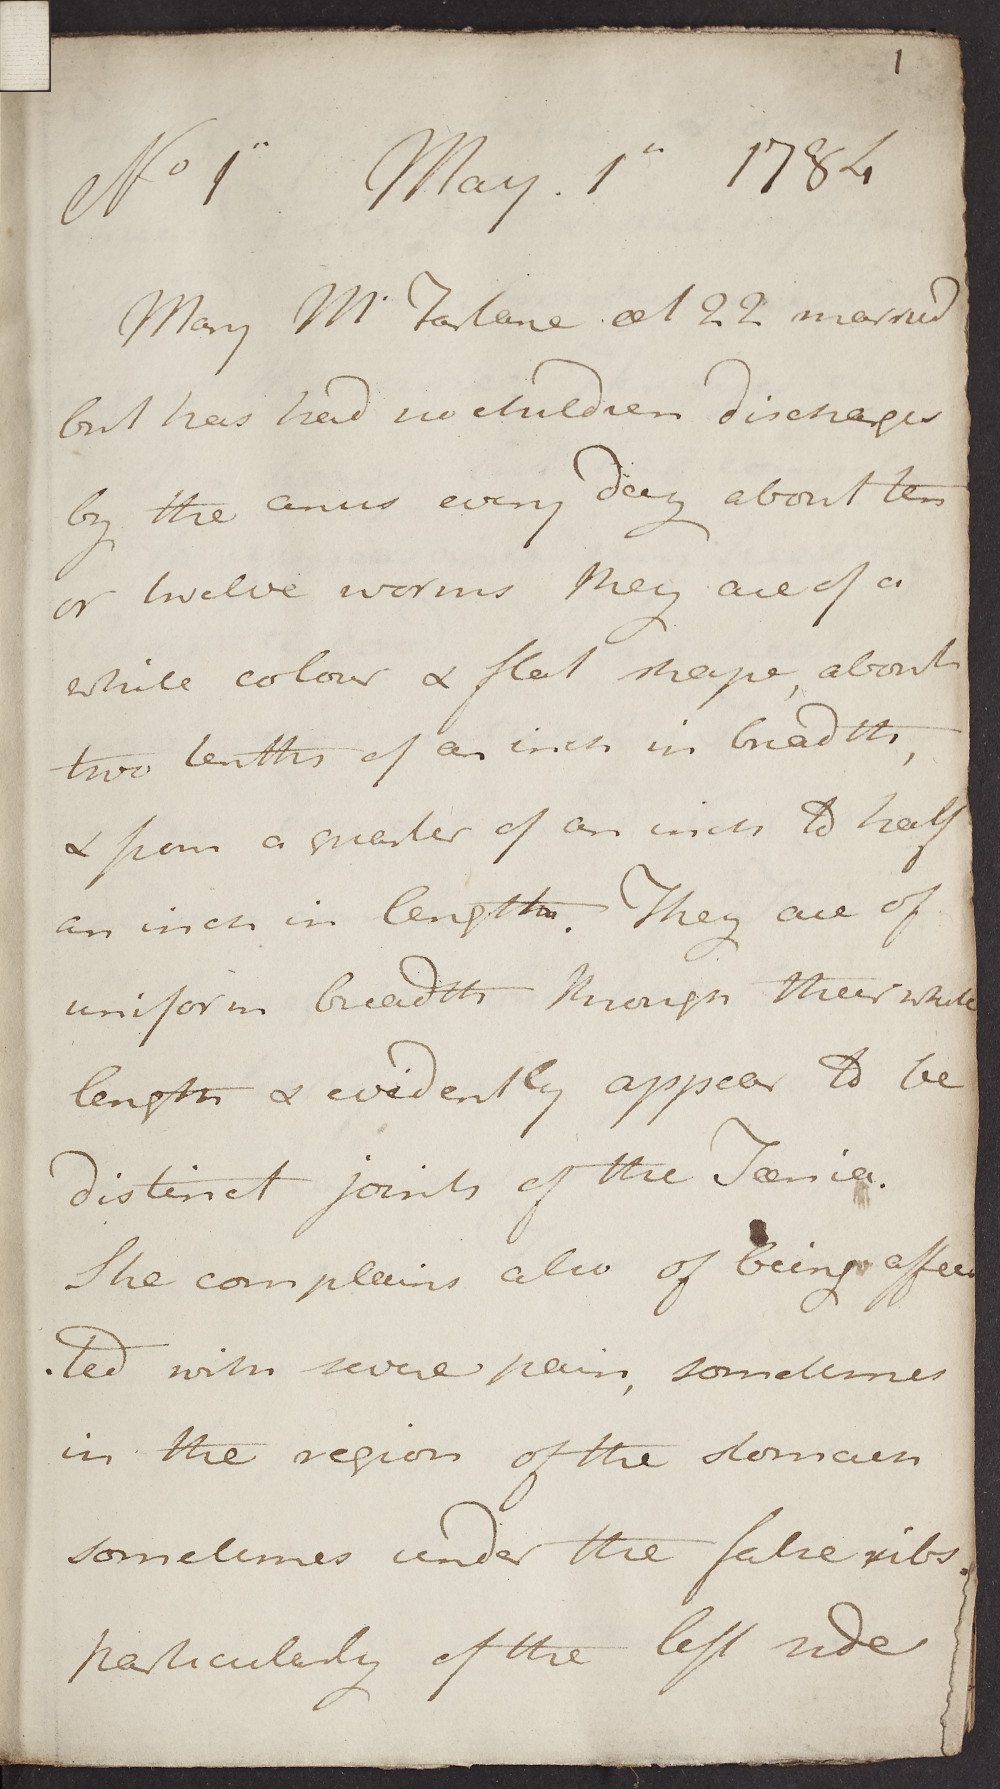 1
No 1" May. 1" 1784
Mary Mc Farlane æt 22 married
but has had no children discharges
by the anus every day about ten
or twelve worms they are of a
white colour & flat shape, about
two tenths of an inch in breadth,
& from a quarter of an inch to half
an inch in length. They are of
uniform breadth through their whole
length & evidently appear to be
distinct joints of the Tænia.
She complains also of being affec
.ted with severe pain, sometimes
in the region of the stomach
sometimes under the false ribs.
particularly of the left side